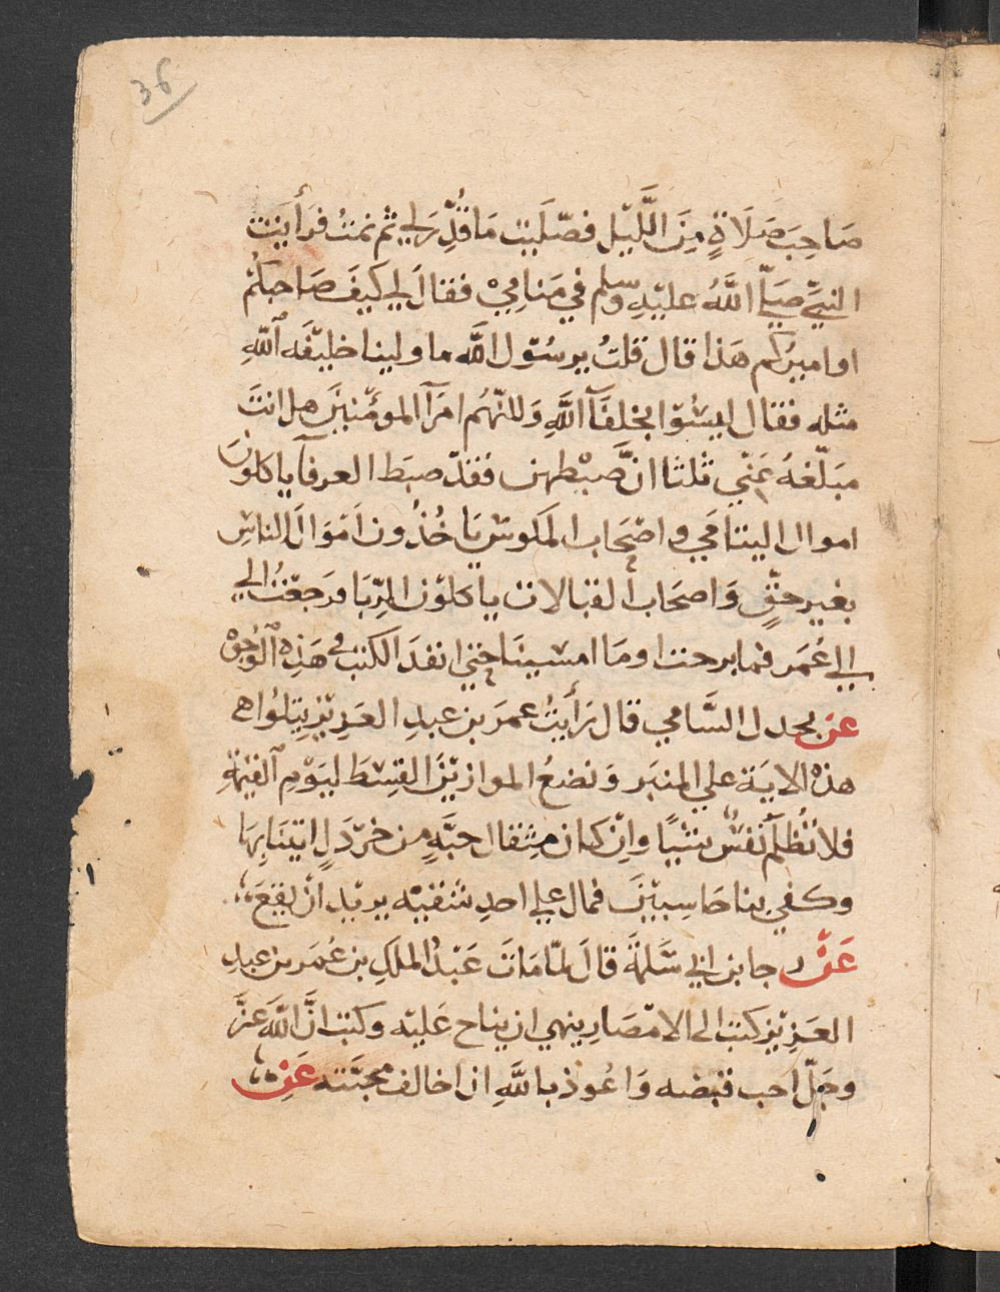 36
صَاحِبَ صَلَاةٍ مِنَ اللَّيْل فصّليت مَا قُدِّرَ لي ثم نمتُ فرَأيت
النبيَّ صَلّي اللَّهُ عليْهِ وسلم في مَنامِيْ فقال لي كيفَ صَاحبكُم
او اميركُم هَذا قال قلتُ يرسُوْل اللَّه ما ولينا خليْفَه اللهِ
مثله فقال ليسُوْا بخلفَآ اللَّهِ وَلَكنّهُم امرَآ المومْنينَ هل انتَ
مبَلّغهُ عَنّي ثلثا انَّ ضبْطهن فقدْ ضبَط العرفآ ياكلونَ
اموال اليتامَي واصْحَاب المَكوسْ يَاخُذُون اَمْوَالَ الناسِ
بغير حقٍّ وَاصحَاب القبالات ياكلوْن الرِّبَا فرَجعْتُ الي
الي عُمَر فما برحت اوما امسينَا حتي انفدَ الكتب في هَذِه الوُجوْه
عن بحدل الشَّامي قال رَأيتُ عمرَ بن عبدِ العَزيْزِ يتلوا هـ
هذه الايَة علي المنبَر وَنضعُ الموازيْنَ القِسْطَ ليَوْمِ القيمَةِ
فلا تُظلَم نفسٌ شيْئًا واِنْ كان مِثقال حبَّةٍ من خرْدَلٍ اتينَا بِهَا
وكفي بنا حَاسِبيْنَ فمال علي احدِ شقيْه يريْد انْ يقعَ
عَنْ رجا بن ابي سَلَمَةَ قالَ لمّا مَاتَ عَبْدُ الملَكِ بن عُمَر بن عبدِ
العَزيْزِ كتب الي الامْصَارِ ينهي ان يناح عَليْه وكتب انَّ اللَّهَ عزَّ
وجَلّ احب قبْضه وَاعُوذ باللَّهِ ان اخالف محبَّته عَنِ